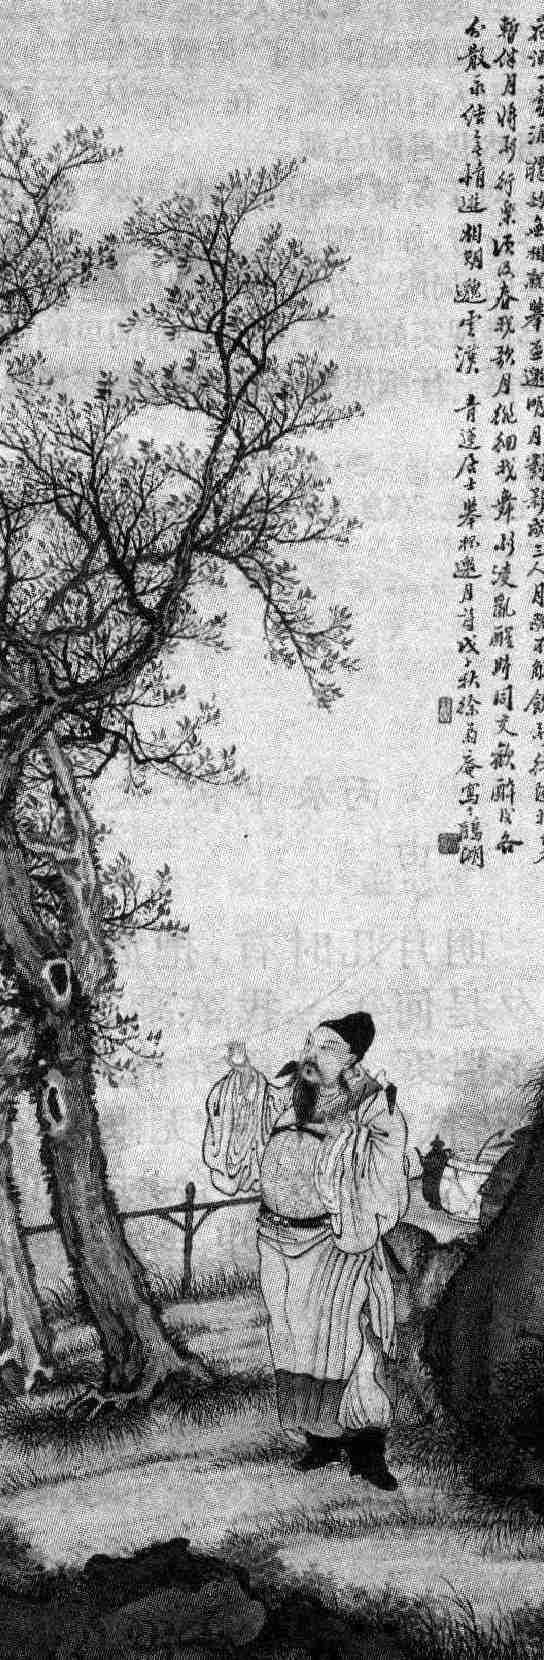 花間一壺酒獨酌無相親舉盃邀明月對影成三人月既不解飲影徒隨我身
暫伴月將影行樂須及春我歌月徘徊我舞影淩亂醒時同交歡醉後各
分散永結無情遊相期邈雲漢 青蓮居士舉杯邀月詩戊秋徐菊庵寫湖